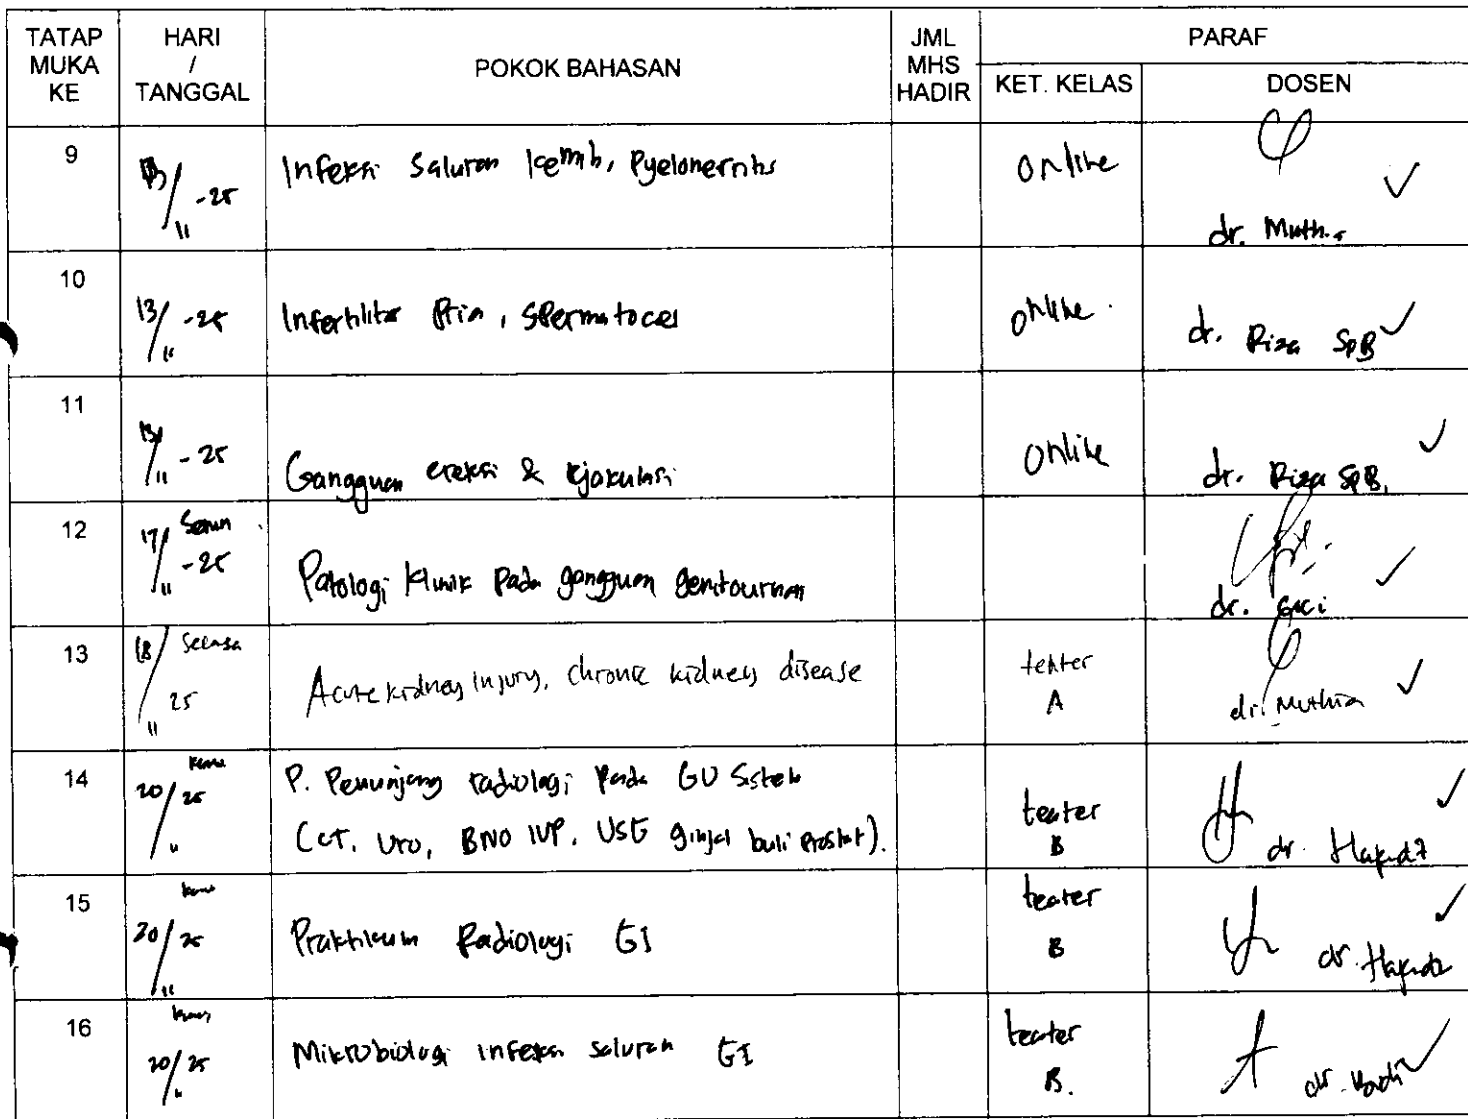 TATAP MUKA KE HARI / TANGGAL POKOK BAHASAN JML MHS HADIR PARAF
KET. KELAS DOSEN
9 13/11 -25 Infeksi Saluran kemih, Pyelonefritis online dr. Muthia
10 13/11 -25 Infertilitas Pria, Spermatocel online dr. Riza SpB
11 13/11 -25 Gangguan ereksi & ejakulasi online dr. Riza SpB
12 17/11 -25 Senin Patologi Klinik pada gangguan genitourinari dr. Suci
13 18/11 25 Selasa Acute kidney injury, chronic kidney disease teater A dr. Muthia
14 20/11 25 Kamis P. Penunjang radiologi pada GU Sistem
(CT. Uro, BNO IVP, USG ginjal buli prostat). teater B dr. Hapidz
15 20/11 25 Kamis Praktikum Radiologi GI teater B dr. Hapidz
16 20/11 25 Kamis Mikrobiologi infeksi saluran GI teater B.